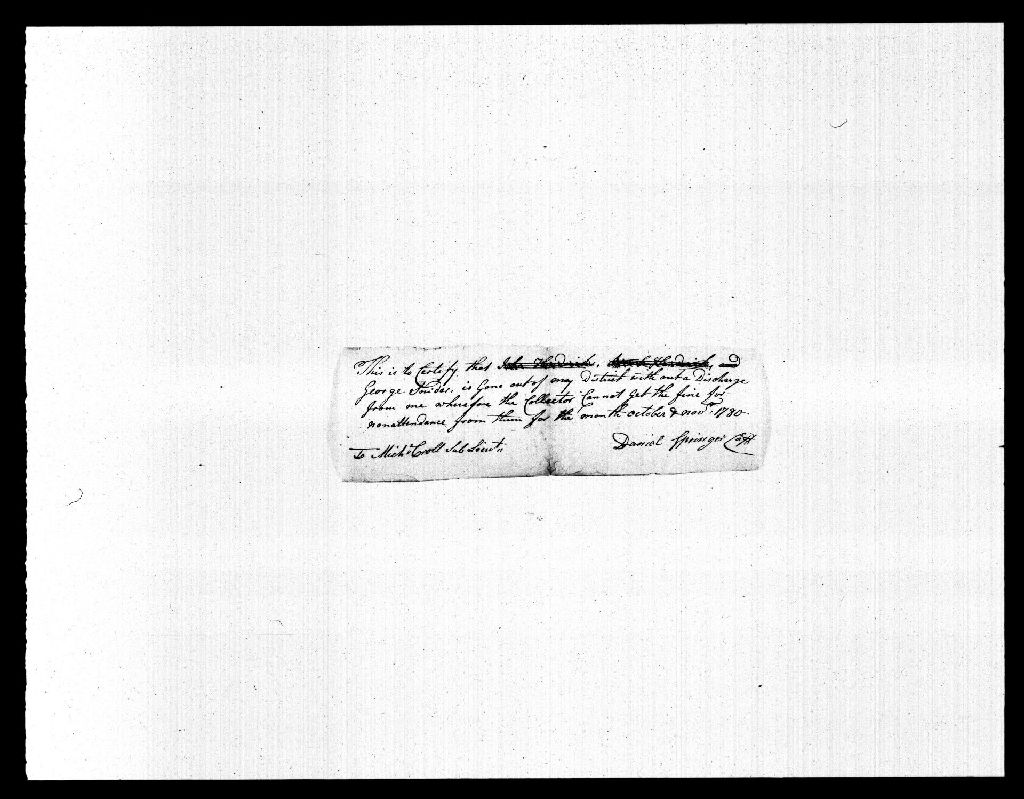 This is to Certify that John Hendrick, Hendrick, and
George Snider, is Gone out of my District with out a Discharge
from me wherefore the Collector Cannot Get the fine for
nonattendance from them for the month october & novr 1780
To Michl Croll Sub Lieut. Daniel Springer Capt